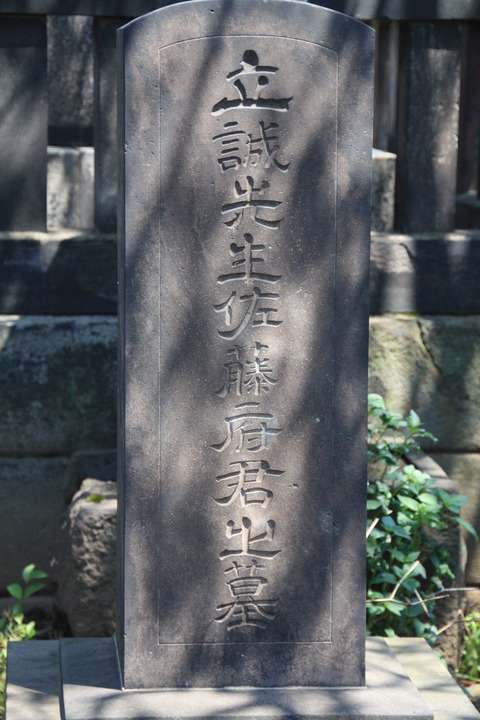 立誠先生佐藤府君之墓